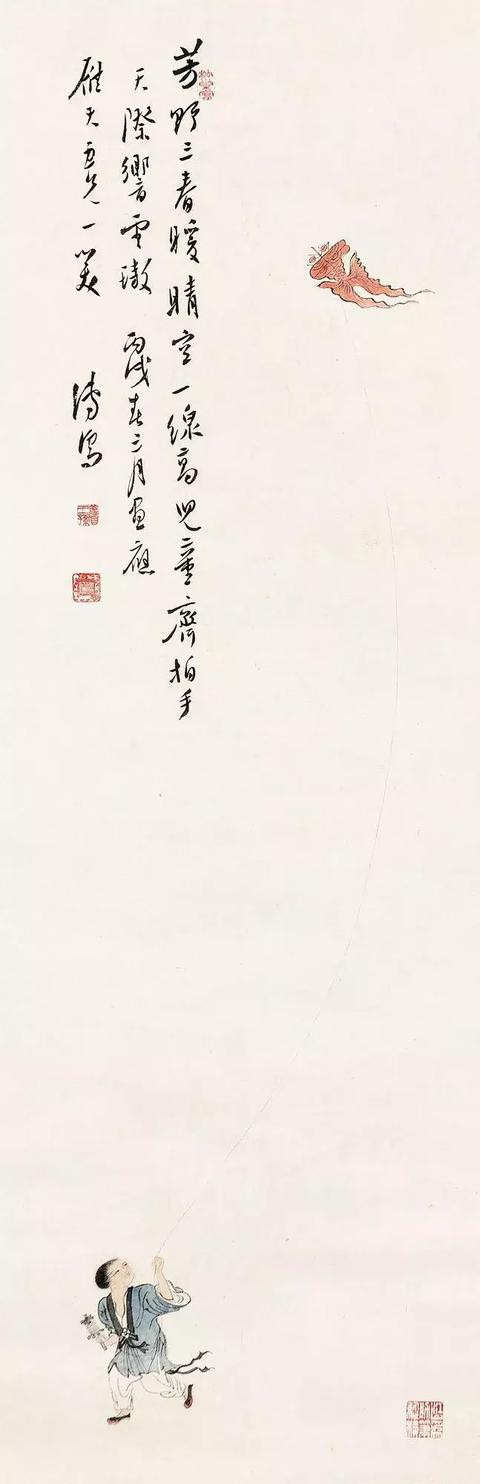 芳野三春暖晴空一線高兒童齊拍手
天際響雲璈 丙戌春三月畫應
雁天兄一笑 溥儒